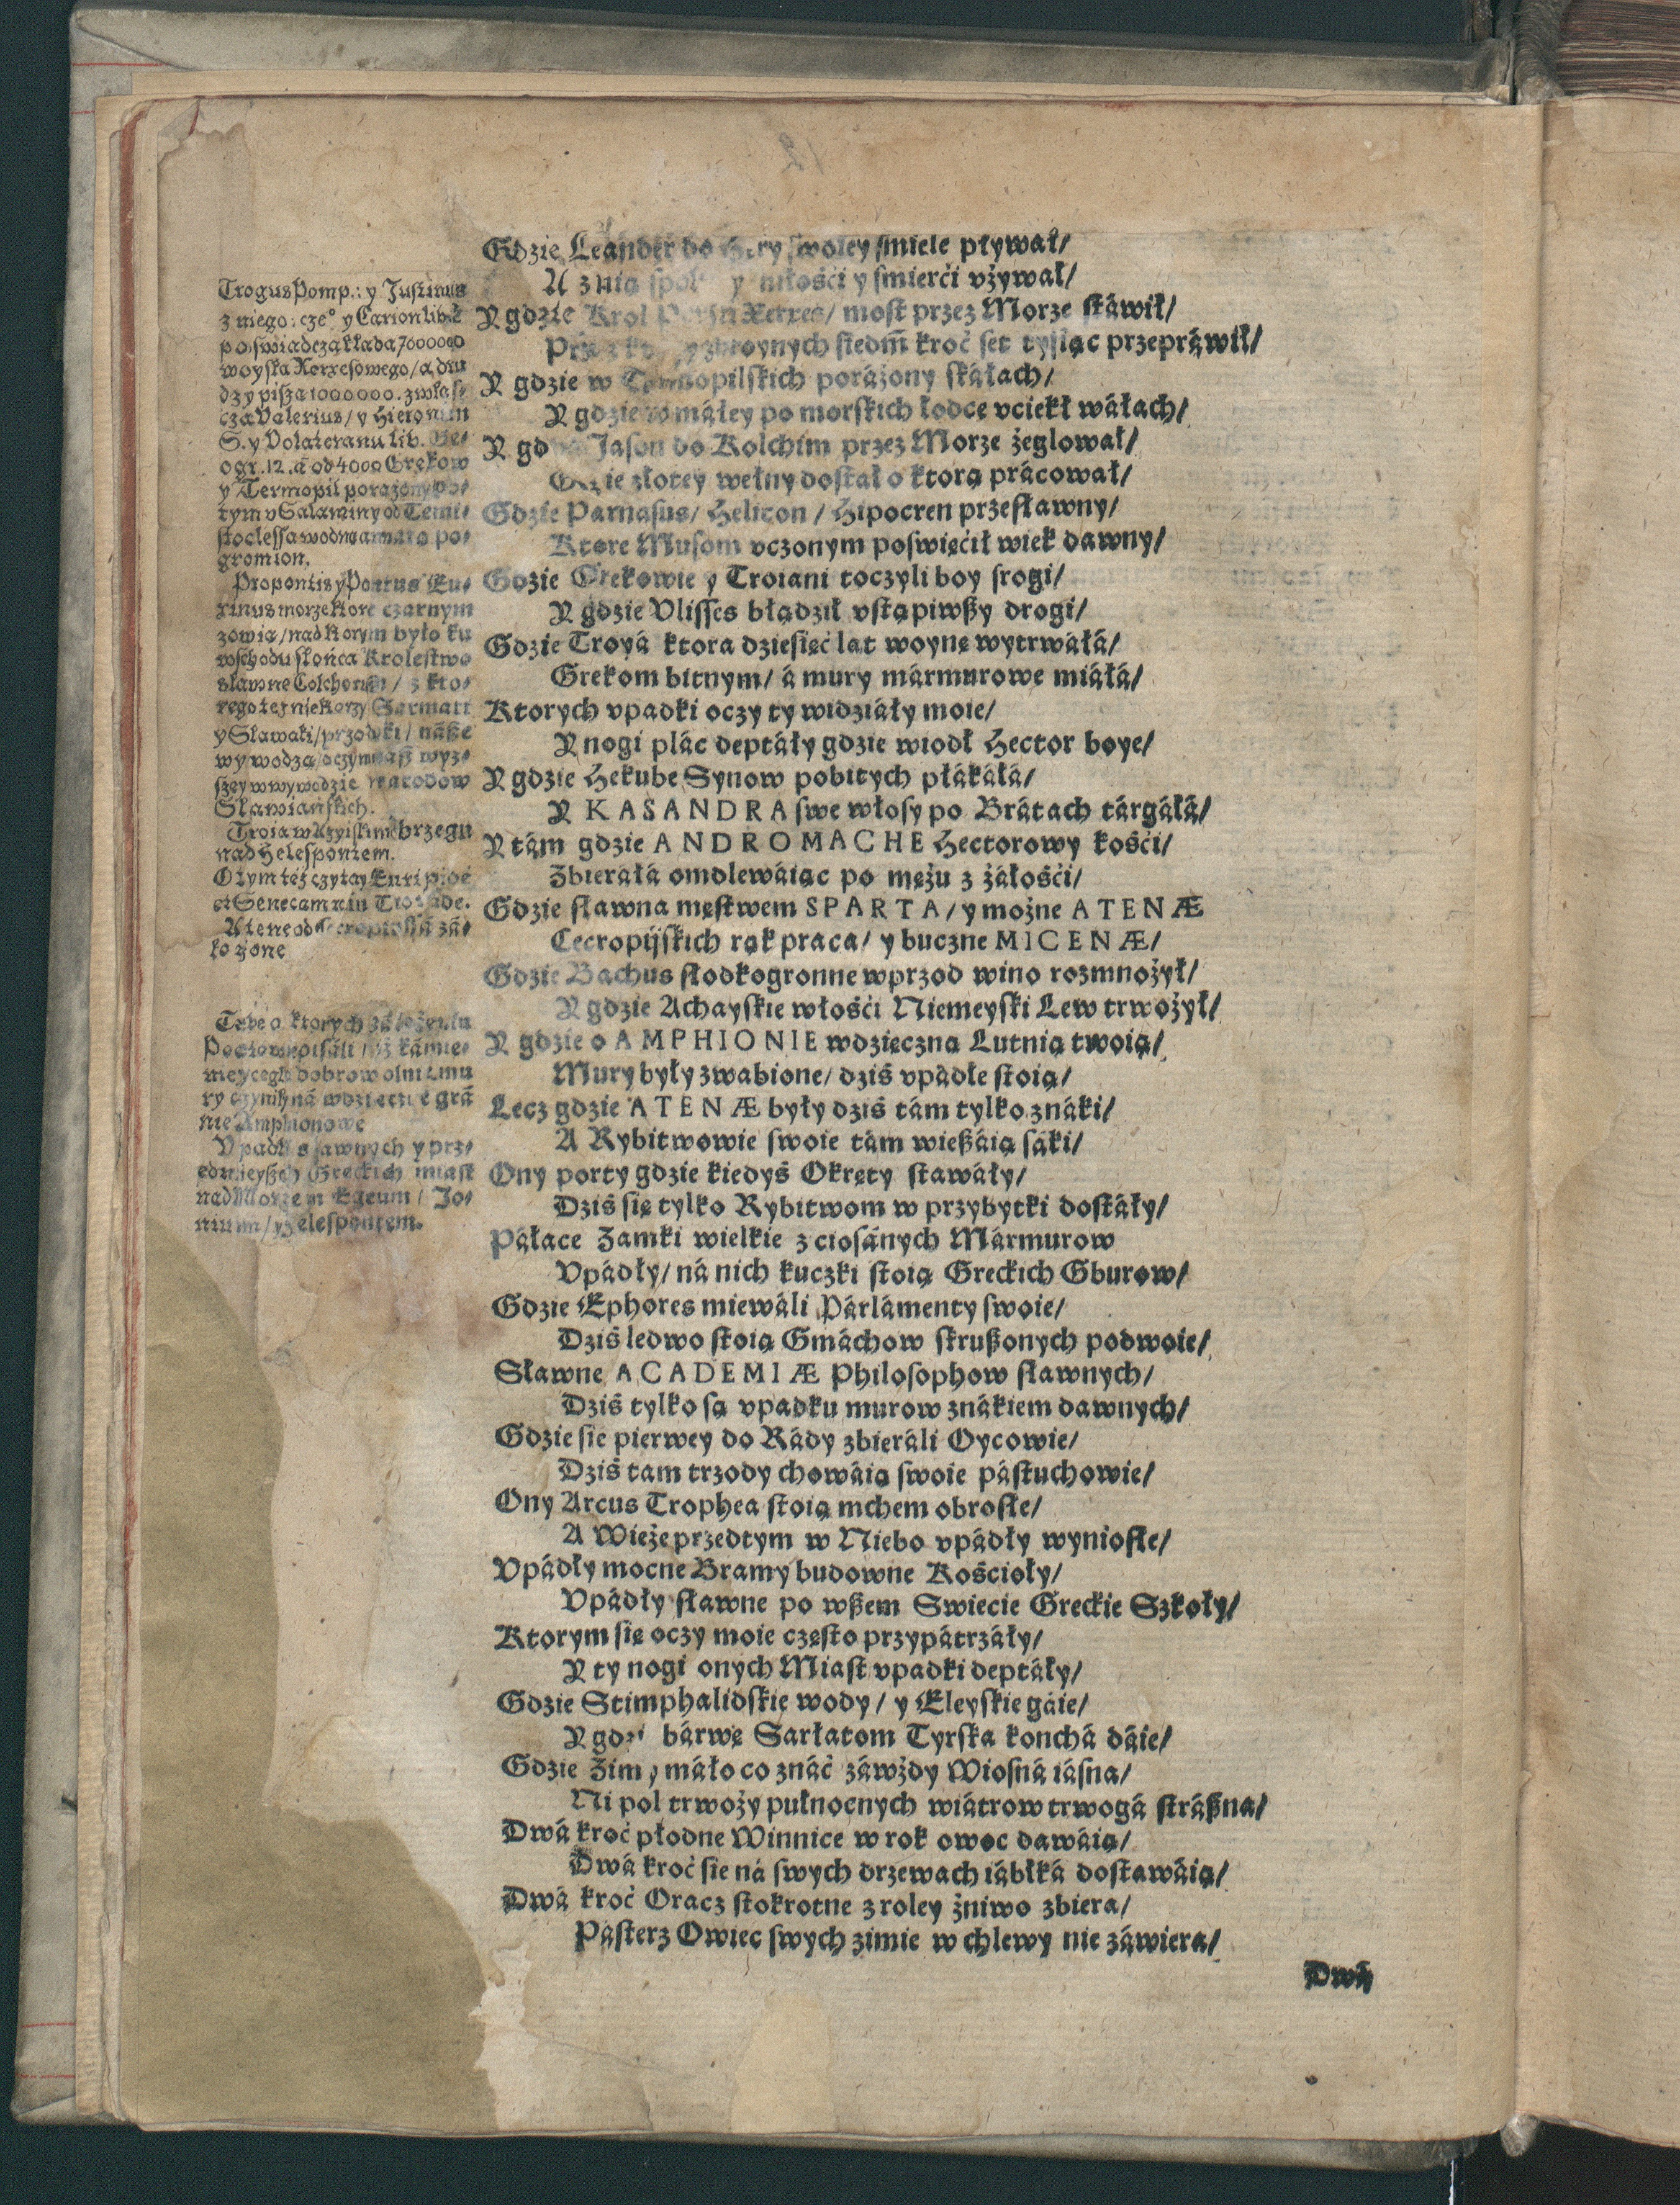 Gdzie Leánder do swoiey smiele pływał/
A z nią y miłośći y smierći vżywał/
Y gdzie Krol Xerxes/ most przez Morze stáwił/
zbroynych siedm̃ kroć set tysiąc przepráwił/
Y gdzie w porážony skáłach/
Y gdzie w máłey po morskich łodce vciekł wáłach/
Y Jason do Kolchim przez Morze żeglował/
Gdzie złotey wełny dostał o ktorą prácował/
Gdzie Parnasus/ Helicon/ Hipocren przesławny/
Ktore Musom vczonym poswięćił wiek dawny/
Gdzie Grekowie y Troiani toczyli boy srogi/
Y gdzie Vlisses błądził vstąpiwßy drogi/
Gdzie Troyá ktora dziesięć lat woynę wytrwáłá/
Grekom bitnym/ á mury mármurowe miáłá/
Ktorych vpadki oczy ty widziáły moie/
Y nogi plác deptáły gdzie wiodł Hector boye/
Y gdzie Hekube Synow pobitych płákáłá/
Y KASANDRA swe włosy po Brátach tárgáłá/
Y tám gdzie ANDROMACHE Hectorowy kośći/
Zbieráłá omdlewáiąc po mężu z żáłośći/
Gdzie sławna męstwem SPARTA/ y możne ATENÆ
Cecropijskich rąk praca/ y buczne MICENÆ/
Gdzie Bachus słodkogronne wprzod wino rozmnożył/
Y gdzie Achayskie włośći Niemeyski Lew trwożył/
Y gdzie o AMPHIONIE wdzięczną Lutnią twoią/
Mury były zwabione/ dziś vpádłe stoią/
Lecz gdzie ATENÆ były dziś tám tylko znáki/
A Rybitwowie swoie tám wießáią sáki/
Ony porty gdzie kiedyś Okręty stawáły/
Dziś się tylko Rybitwom w przybytki dostáły/
Páłace Zamki wielkie z ciosánych Mármurow
Vpádły/ ná nich kuczki stoią Greckich Gburow/
Gdzie Ephores miewáli Párlámenty swoie/
Dziś ledwo stoią Gmáchow skrußonych podwoie/
Sławne ACADEMIÆ Philosophow sławnych/
Dziś tylko są vpadku murow znákiem dawnych/
Gdzie sie pierwey do Rády zbieráli Oycowie/
Dziś tam trzody chowáią swoie pástuchowie/
Ony Arcus Trophea stoią mchem obrosłe/
A Wieże przedtym w Niebo vpádły wyniosłe/
Vpádły mocne Bramy budowne Kościoły/
Vpádły sławne po wßem Swiecie Greckie Szkoły/
Ktorym się oczy moie często przypátrzáły/
Y ty nogi onych Miast vpadki deptáły/
Gdzie Stimphalidskie wody/ y Eleyskie gáie/
Y bárwę Sarłatom Tyrska konchá dáie/
Gdzie Zimy máło co znáć záwżdy Wiosná iásna/
Ni pol trwoży pułnocnych wiátrow trwogá stráßna/
Dwá kroć płodne Winnice w rok owoc dawáią/
Dwá kroć sie ná swych drzewach iábłká dostawáią/
Dwá kroć Oracz stokrotne z roley żniwo zbiera/
Pásterz Owiec swych zimie w chlewy nie záwiera/
Dwá
Trogus Pomp.: y Justinus
z niego: y Carion lib. 2
poswiadczą kłada 7000000
woyska Xerxesowego/ a dru
dzy pißa 1000000. zwłas⸗
cza Valerius/ y Hieronim
S. y Volateranu lib. Ge⸗
ogr. 12. á od 4000 Grekow
y Termopil porażony po⸗
tym v Salaminy od Temi⸗
stoclessa wodną po⸗
gromion.
Propontis y Pontus Eu⸗
xinus morze ktore czarnym
zowią/ nad ktorym było ku
wschodu słońca Krolestwo
sławne Colchorum/ z kto⸗
rego też niektorzy Sarmati
y Sławaki/ przodki/ náße
wywodzą/ oczym wyz⸗
szey w wywodzie narodow
Sławiańskich.
Troia w Azyiskim brzegu
nad Helespontem.
O tym też czytay Euripide
et Senecam in Troade.
Atene od zá⸗
łożone
Tebe o ktorych záłożeniu
Poetowe pisáli/ iż kámie⸗
dobrowolni mu
ry ná wdzięcz gra
nie Amphionowe
Vpadki sławnych y prz⸗
ednieyßych Greckich miast
nad Morzem Egeum/ Jo⸗
nium/ Helespontem.